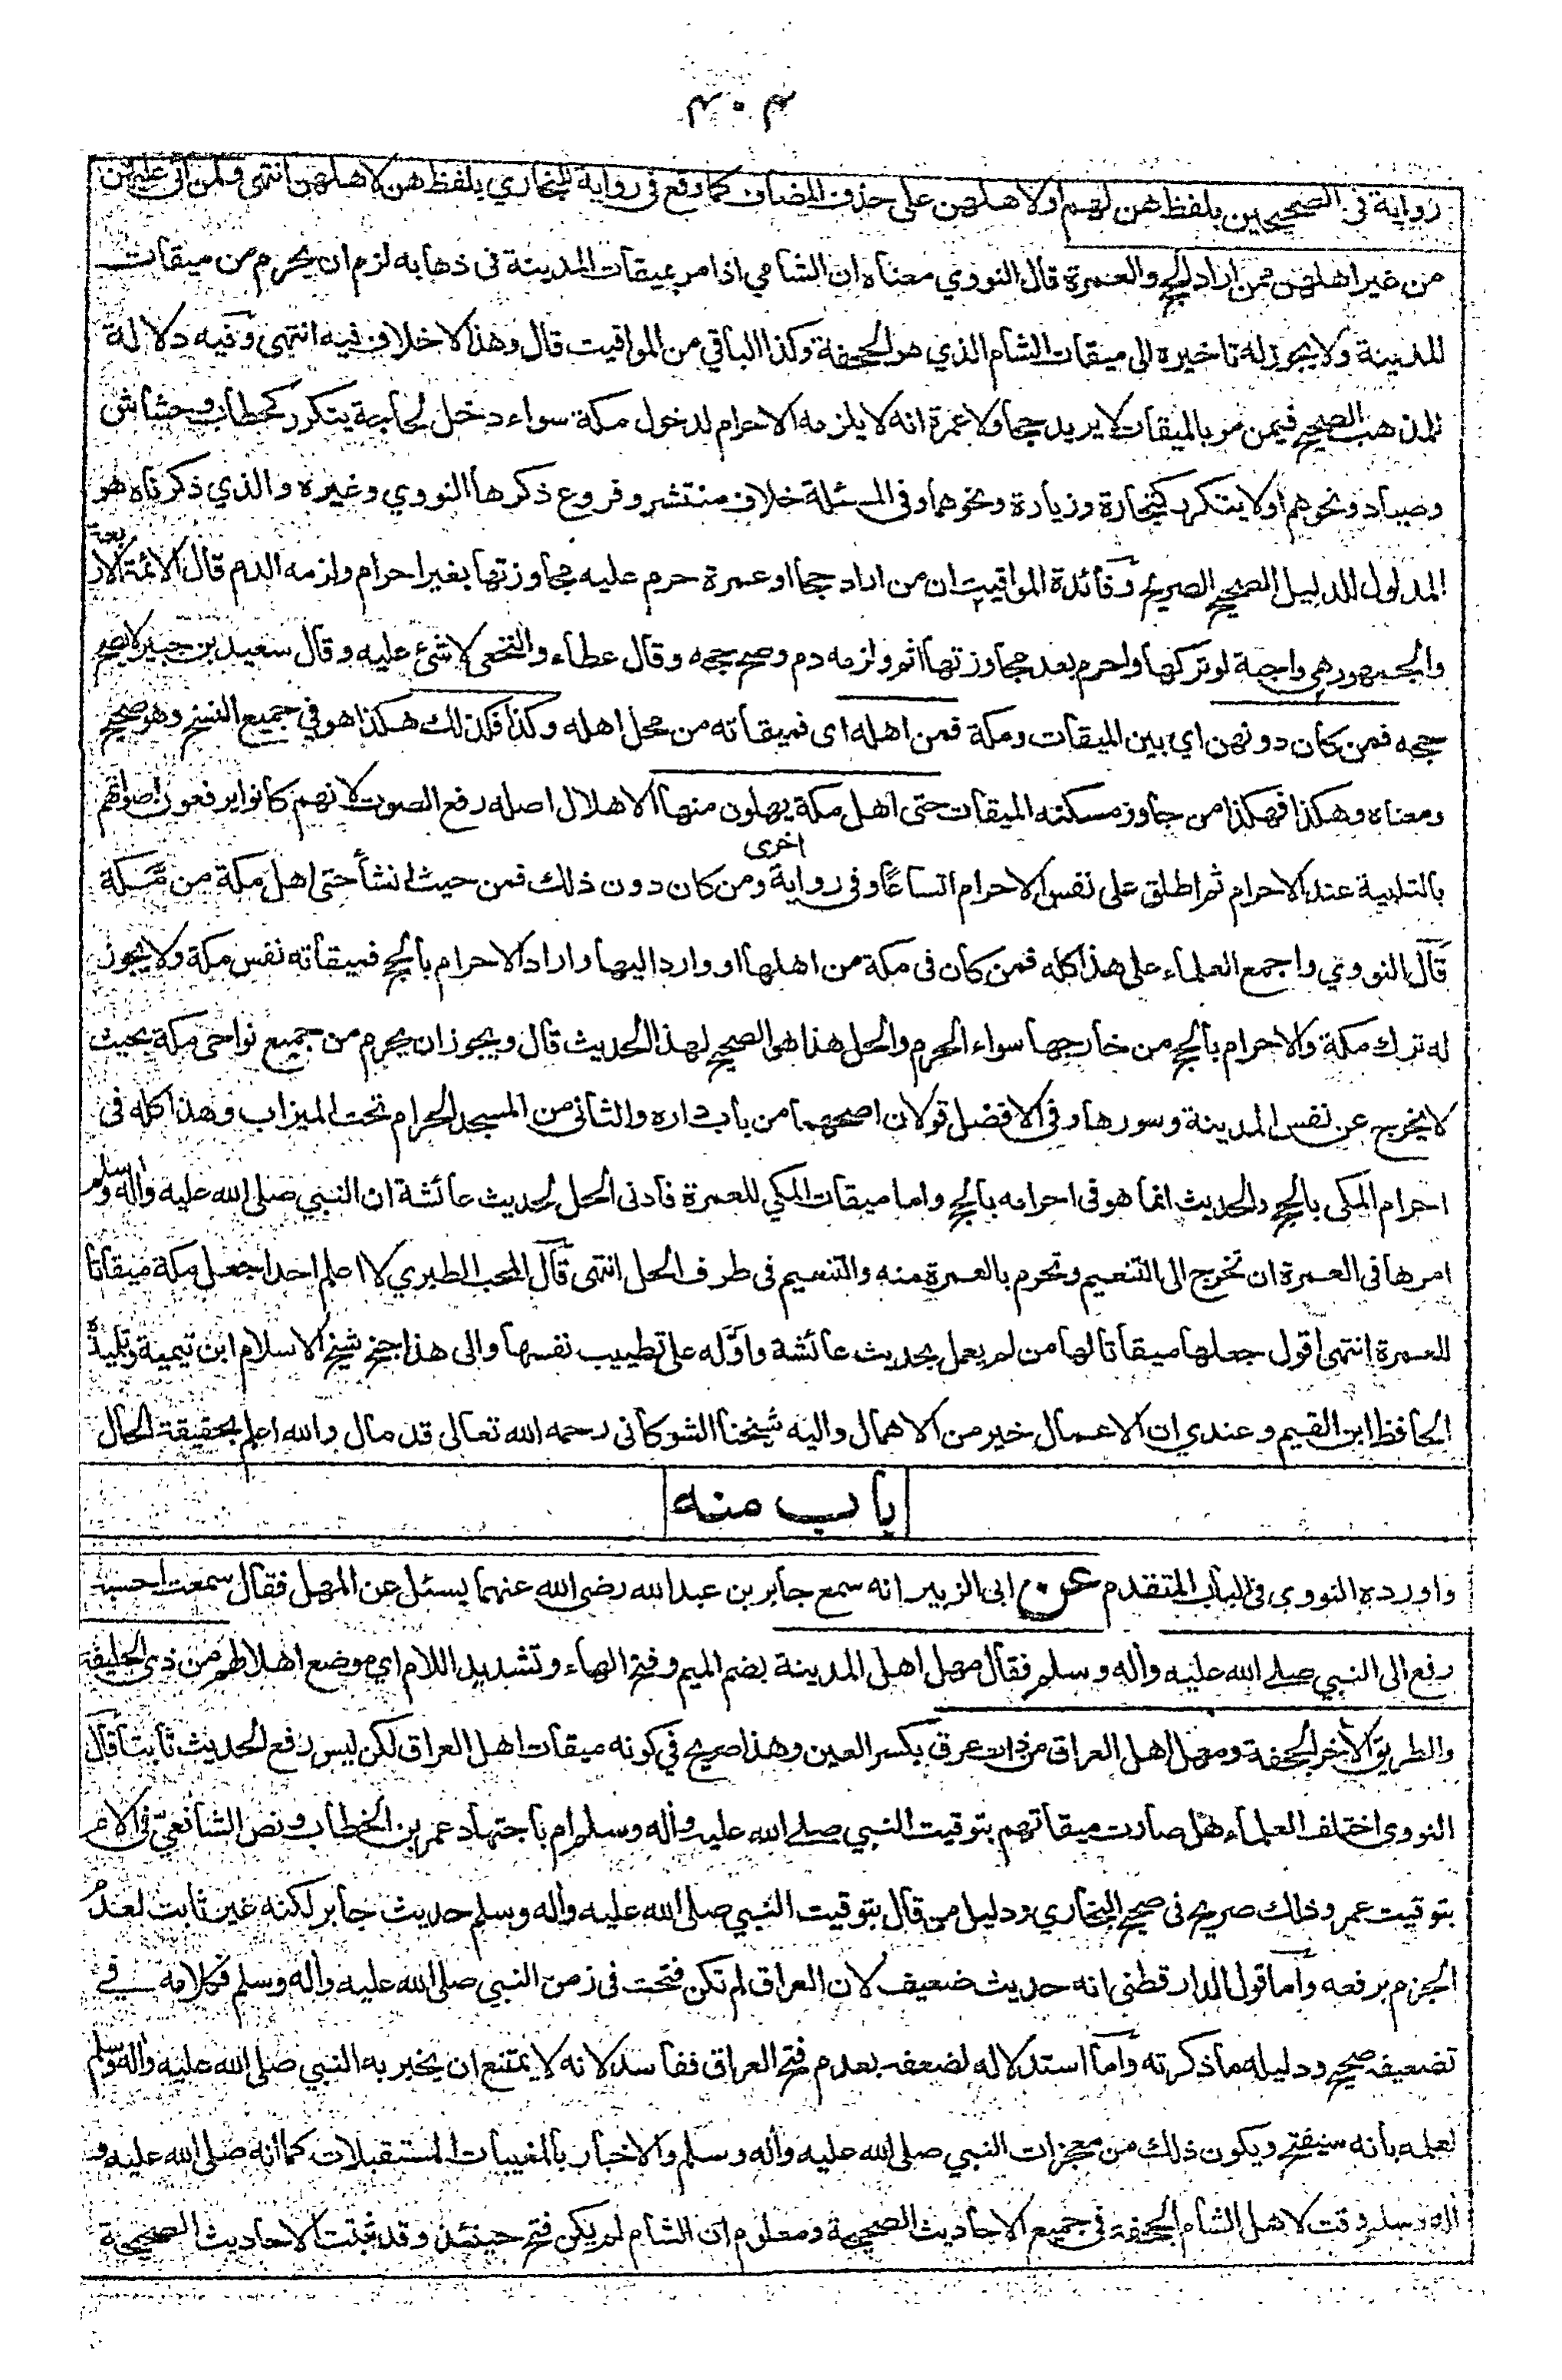 ٤٠٤
رواية في الصحيحين بلفظ هن لهم او لاهلهن على حذف المضاف كما وقع في رواية للبخاري بلفظ هن لاهلهن انتهى ولمن اتى عليهن
من غير اهلهن ممن اراد الحج والعمرة قال النووي معناه ان الشامي اذا مر بميقات المدينة في ذهابه لزم ان يحرم من ميقات
المدينة ولا يجوز له تاخيره الى ميقات الشام الذي هو الجحفة وكذا الباقي من المواقيت قال وهذا لا خلاف فيه انتهى وفيه دلالة
للمذهب الصحيح فيمن مر بالميقات لا يريد حجا ولا عمرة انه لا يلزمه الاحرام لدخول مكة سواء دخل لحاجة يتكرر كحطاب وحشاش
وصياد ونحوهم او لا يتكرر كتجارة وزيارة ونحوهما وفي المسئلة خلاف منتشر وفروع ذكرها النووي وغيره والذي ذكرناه هو
المدلول للدليل الصحيح الصريح وفائدة المواقيت ان من اراد حجا او عمرة حرم عليه مجاوزتها بغير احرام ولزمه الدم قال الائمة الاربعة
والجمهور هي واجبة لو تركها واحرم بعد مجاوزتها اثم ولزمه دم وصح حجه وقال عطاء والنخعي لا شئ عليه وقال سعيد بن جبير لا يصح
حجه فمن كان دونهن اي بين الميقات ومكة فمن اهله اى فميقاته من محل اهله وكذا فكذلك هكذا هو في جميع النسخ وهو صحيح
ومعناه وهكذا فهكذا من جاوز مسكنه الميقات حتى اهل مكة يهلون منها الاهلال اصله رفع الصوت لانهم كانوا يرفعون اصواتهم
بالتلبية عند الاحرام ثم اطلق على نفس الاحرام اتساعًا وفي رواية اخرى ومن كان دون ذلك فمن حيث انشأ حتى اهل مكة من مكة
قال النووي واجمع العلماء على هذا كله فمن كان في مكة من اهلها او واردا اليها واراد الاحرام بالحج فميقاته نفس مكة ولا يجوز
له ترك مكة والاحرام بالحج من خارجها سواء الحرم والحل هذا هو الصحيح لهذا الحديث قال ويجوز ان يحرم من جميع نواحي مكة بحيث
لا يخرج عن نفس المدينة وسورها وفي الافضل قولان اصحهما من باب داره والثاني من المسجد الحرام تحت الميزاب وهذا كله في
احرام المكي بالحج والحديث انما هو في احرامه بالحج واما ميقات المكي للعمرة فادنى الحل لحديث عائشة ان النبي صلى الله عليه واله وسلم
امرها في العمرة ان تخرج الى التنعيم وتحرم بالعمرة منه والتنعيم في طرف الحل انتهى قال المحب الطبري لا اعلم احدا جعل مكة ميقاتا
للعمرة انتهى اقول جعلها ميقاتا لها من لم يعمل بحديث عائشة واوّله على تطييب نفسها والى هذا جنح شيخ الاسلام ابن تيمية وتلميذه
الحافظ ابن القيم وعندي ان الاعمال خير من الاهمال واليه شيخنا الشوكاني رحمه الله تعالى قد مال والله اعلم بحقيقة الحال
باب منه
واورده النووي في الباب المتقدم عن ابي الزبير انه سمع جابر بن عبد الله رضي الله عنهما يسئل عن المهل فقال سمعت احسبه
رفع الى النبي صلى الله عليه واله وسلم فقال مهل اهل المدينة بضم الميم وفتح الهاء وتشديد اللام اي موضع اهلالهم من ذي الحليفة
والطريق الاخر الجحفة ومهل اهل العراق من ذات عرق بكسر العين وهذا صريح في كونه ميقات اهل العراق لكن ليس رفع الحديث ثابتا قال
النووي اختلف العلماء هل صارت ميقاتهم بتوقيت النبي صلى الله عليه واله وسلم ام باجتهاد عمر بن الخطاب ونص الشافعي في الام
بتوقيت عمر وذلك صريح في صحيح البخاري ودليل من قال بتوقيت النبي صلى الله عليه واله وسلم حديث جابر لكنه غير ثابت لعدم
الجزم برفعه واما قول الدارقطني انه حديث ضعيف لان العراق لم تكن فتحت في زمن النبي صلى الله عليه واله وسلم فكلامه في
تضعيفه صحيح ودليله ما ذكرته واما استدلاله لضعفه بعدم فتح العراق ففاسد لانه لا يمتنع ان يخبر به النبي صلى الله عليه واله وسلم
لعلمه بانه سيفتح ويكون ذلك من معجزات النبي صلى الله عليه واله وسلم والاخبار بالمغيبات المستقبلات كما انه صلى الله عليه و
اله وسلم وقت لاهل الشام الجحفة في جميع الاحاديث الصحيحة ومعلوم ان الشام لم يكن فتح حينئذ وقد ثبتت الاحاديث الصحيحة